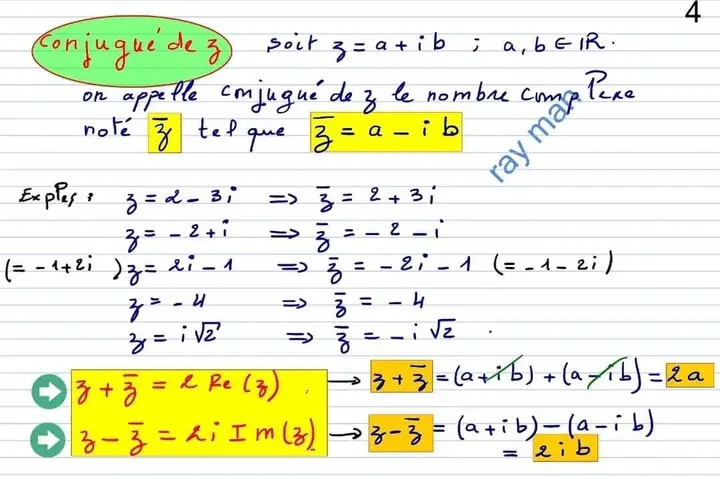 4
conjugué de z soit z = a + i b ; a, b ∈ ℝ.
on appelle conjugué de z le nombre complexe
noté z̅ tel que z̅ = a - i b
ray man
Exples : z = 2 - 3i ⇒ z̅ = 2 + 3i
z = -2 + i ⇒ z̅ = -2 - i
(= -1 + 2i) z = 2i - 1 ⇒ z̅ = -2i - 1 (= -1 - 2i)
z = -4 ⇒ z̅ = -4
z = i√2 ⇒ z̅ = -i√2 .
z + z̅ = 2 Re(z) → z + z̅ = (a + i b) + (a - i b) = 2a
z - z̅ = 2i Im(z) → z - z̅ = (a + i b) - (a - i b)
= 2 i b